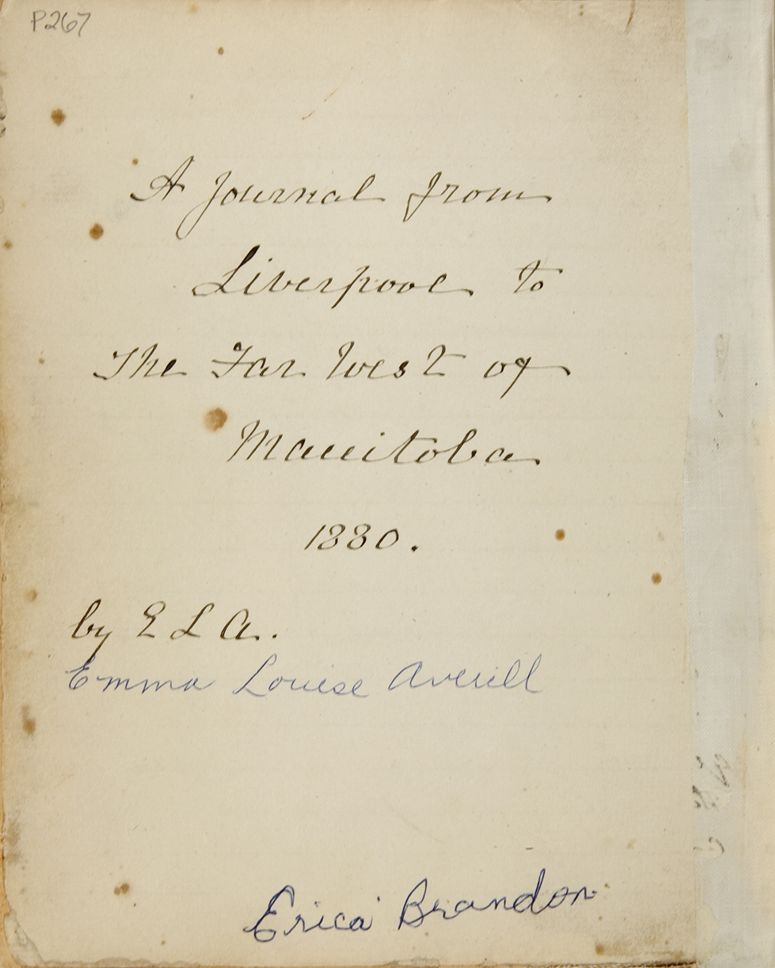 P267
A Journal from
Liverpool to
The Far West of
Manitoba
1880.
by E L A.
Emma Louise Averill
Erica Brandon